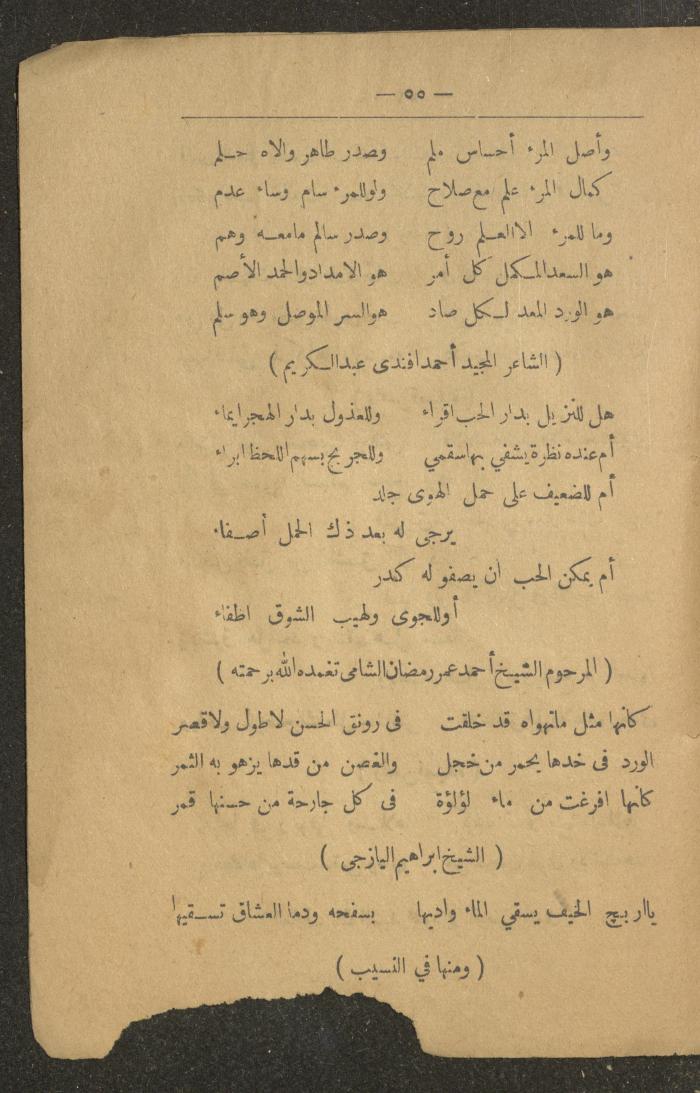 — ٥٥ —
وأصل المرء أحساس ملم وصدر طاهر والاه حلم
كمال المرء علم مع صلاح ولوللمرء سام وساء عدم
وما للمرء الاالعلم روح وصدر سالم مامعه وهم
هو السعدالمكمل كل أمر هو الامدادوالحمد الأصم
هو الورد المعد لكل صاد هوالسر الموصل وهو سلم
( الشاعر المجيد أحمد افندى عبدالكريم )
هل للنزيل بدار الحب اقراء وللعذول بدار الهجر ايماء
أم عنده نظرة يشفي بها سقمي وللجريح بسهم اللحظ ابراء
أم للضعيف على حمل الهوى جلد
يرجى له بعد ذك الحمل أصفاء
أم يمكن الحب ان يصفو له كدر
أوللجوى ولهيب الشوق اطفاء
( المرحوم الشيخ أحمد عمر رمضان الشامى تغمده الله برحمته )
كأنها مثل ماتهواه قد خلقت فى رونق الحسن لاطول ولاقصر
الورد فى خدها يحمر من خجل والغصن من قدها يزهو به الثمر
كأنها افرغت من ماء لؤلؤة فى كل جارحة من حسنها قمر
( الشيخ ابراهيم اليازجى )
ياار بيح الخيف يسقي الماء واديها بسفحه ودما العشاق تسقيها
( ومنها في النسيب )